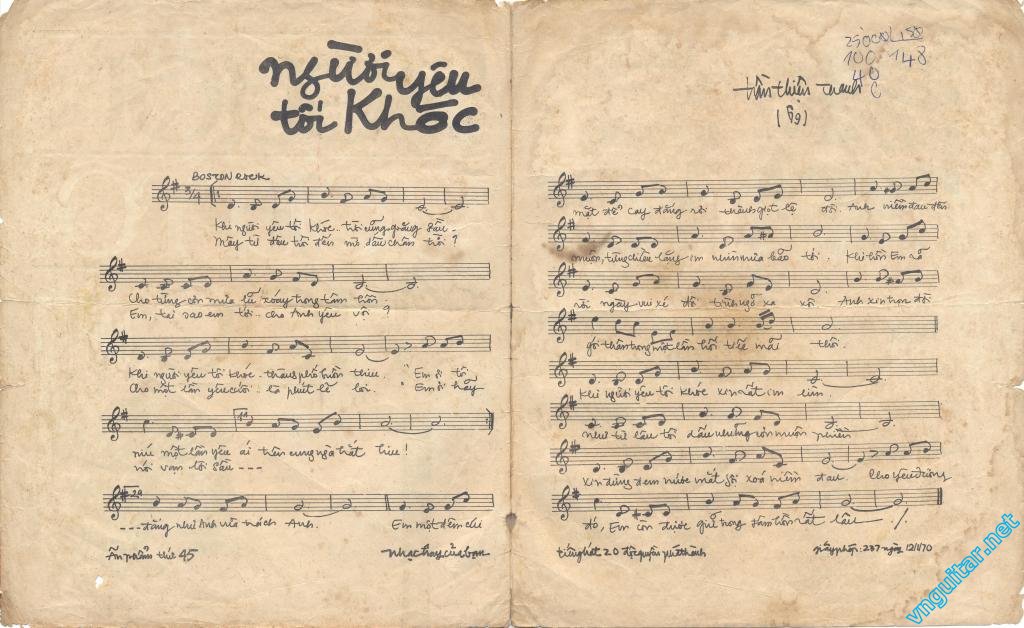 người yêu
tôi Khóc
BOSTON ROCK
3/4
Khi người yêu tôi khóc.. trời cũng giăng sầu -
Mây từ đâu trôi đến mờ dấu chân trời?
Cho từng cơn mưa lũ xoáy trong tâm hồn.
Em, tại sao em tới.. cho Anh yêu vội?
Khi người yêu tôi khóc. thành phố buồn thiu. "Em ơi tô
Cho một lần yêu cuối.. là phút lẻ loi. "Em ơi hãy
níu một lần yêu ái trần cung ngà hắt hiu!
nói vạn lời sầu ----
----đừng như Anh vừa trách Anh. Em một đêm cúi
Ấn phẩm thứ 45
nhạc hay của bạn
25000đ 188
100 148
40
trần thiện thanh
(69)
mắt để cay đắng rơi thành giọt lệ đôi. Anh niềm đau đến
muộn, từng chiều lặng im nhìn mưa bão tới. Khi hồn Em rã
rời ngày vui xé đôi tình ngỏ xa xôi. Anh xin trọn đời
gối thầm trong một lần hối tiếc mãi thôi.
Khi người yêu tôi khóc xin rất im lìm.
như từ lâu tôi dấu những cơn muộn phiền
Xin đừng đem nước mắt gội xoá niềm đau. Cho yêu đương
đó, Em còn được giữ trong tâm hồn rất lâu ./.
tiếng hát 20 độc quyền phát thành
giấy phép: 287 ngày 12/1/70
vnguitar.net